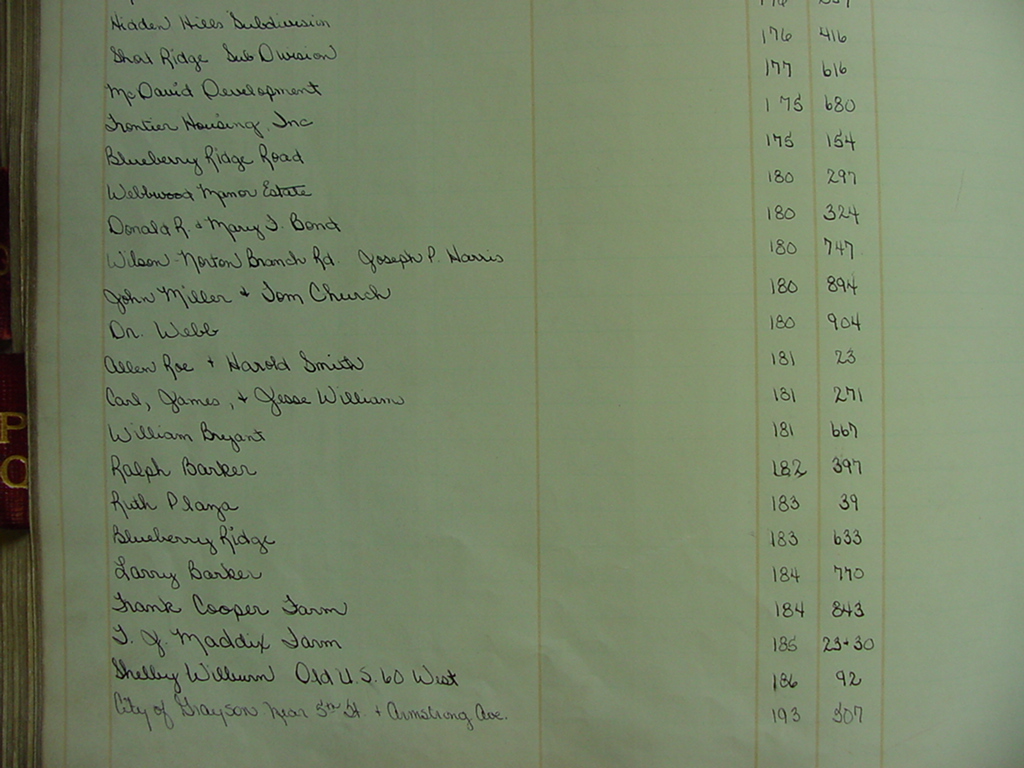 Hidden Hills Subdivision 176 416
Shal Ridge Sub Division 177 616
McDavid Development 175 680
Frontier Housing, Inc 175 154
Blueberry Ridge Road 180 297
Webbwood Manor Estate 180 324
Donald R. & Mary J. Bond 180 747
Wilson-Norton Branch Rd. Joseph P. Harris 180 894
John Miller & Tom Church 180 904
Dr. Webb 181 23
Allen Roe + Harold Smith 181 271
Carl, James, & Jesse William 181 667
William Bryant 182 397
Ralph Barker 183 39
Ruth Plaza 183 633
Blueberry Ridge 184 770
Larry Barker 184 843
Frank Cooper Farm 185 23+30
T. J. Maddix Farm 186 92
Shelby Wilburn Old U.S. 60 West 193 507
City of Grayson near 5th St. + Armstrong Ave.
P
Q